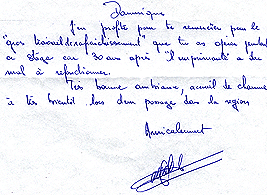 Dominique
J'en profite pour te remercier pour le
"gros travail de rafraichissement" que tu as opéré pendant
le stage car 30 ans après "l'imprimante" a du
mal à refonctionner.
Très bonne ambiance, accueil de charme
à très bientôt lors d'un passage dans la région
Amicalement